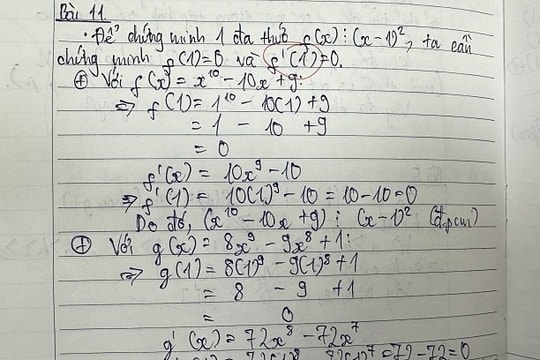 Bài 11.
• Để chứng minh 1 đa thức f(x) ⋮ (x-1)², ta cần
chứng minh f(1)=0 và f'(1)=0.
⊕ Với f(x) = x¹⁰ - 10x + 9:
⇒ f(1) = 1¹⁰ - 10(1) + 9
= 1 - 10 + 9
= 0
f'(x) = 10x⁹ - 10
⇒ f'(1) = 10(1)⁹ - 10 = 10 - 10 = 0
Do đó, (x¹⁰ - 10x + 9) ⋮ (x-1)² (đpcm)
⊕ Với g(x) = 8x⁹ - 9x⁸ + 1:
⇒ g(1) = 8(1)⁹ - 9(1)⁸ + 1
= 8 - 9 + 1
= 0
g'(x) = 72x⁸ - 72x⁷
72(1)⁸ 72(1)⁷ = 72 - 72 = 0